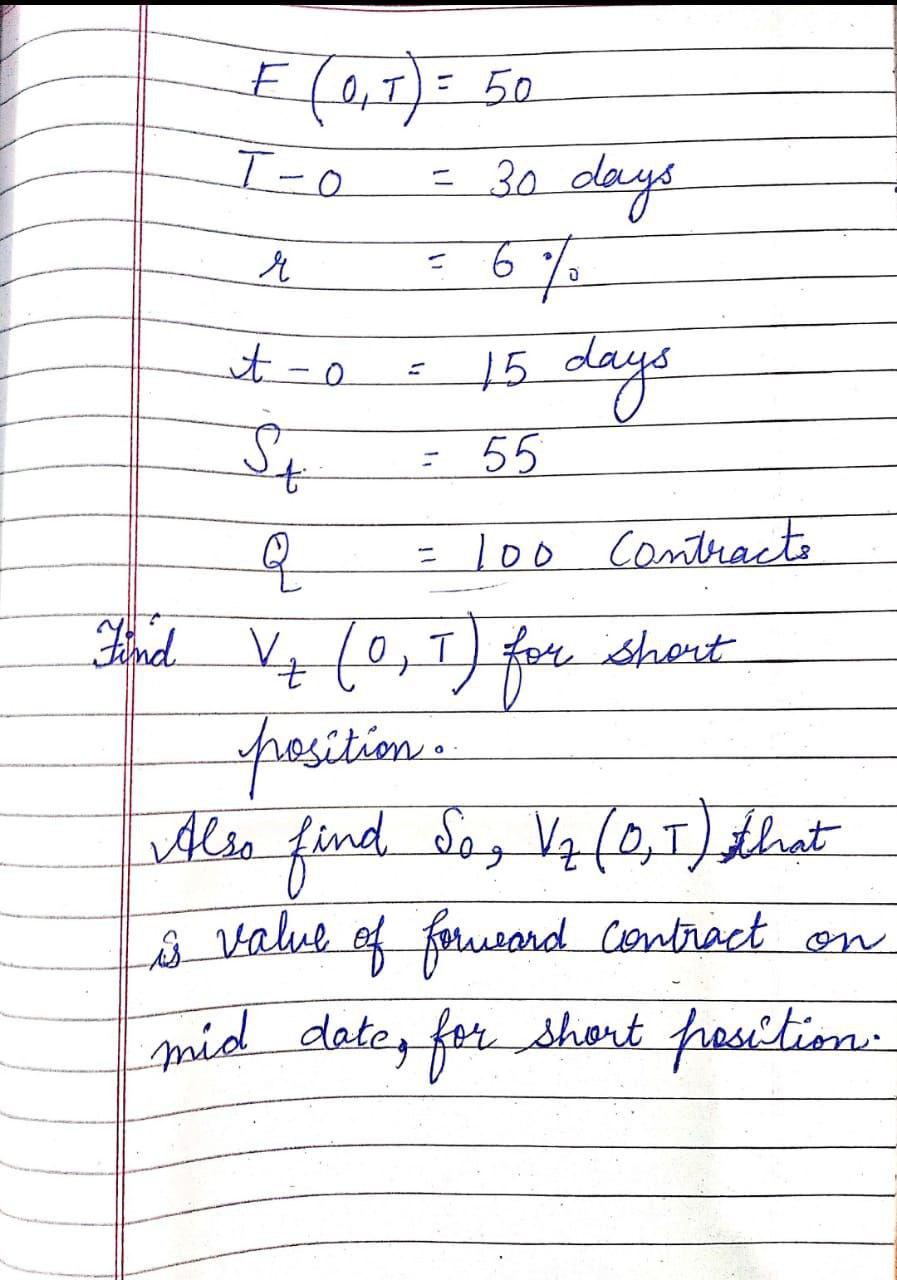 F (0,T) = 50
T - 0 = 30 days
r = 6 %
t - 0 = 15 days
St = 55
Q = 100 Contracts
Find Vt (0,T) for short
position.
Also find So, Vt (0,T) that
is value of forward contract on
mid date, for short position.